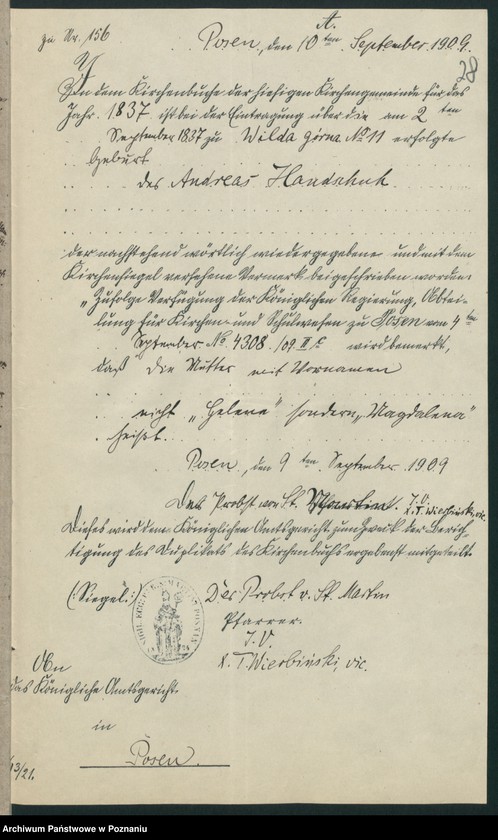 zu Nr. 156
A.
Posen, den 10 ten September 1909.
28
In dem Kirchenbuche der hiesigen Kirchengemeinde für das
Jahr 1837 ist bei der Eintragung über die am 2 ten
September 1837 zu Wilda Górna No 11 erfolgte
Geburt
des Andreas Handschuh
der nachstehend wörtlich wiedergegebene und mit dem
Kirchensiegel versehene Vermerk beigeschrieben worden:
"Zufolge Verfügung der Königlichen Regierung, Abtei-
lung für Kirchen- und Schulwesen zu Posen vom 4 ten
September No 4308./09. II C wird bemerkt,
daß die Mutter mit Vornamen
nicht "Helene" sondern "Magdalena"
heißt.
Posen, den 9 ten September 1909
Der Probst von St. Martin. I. V.
X. T. Wierbiński, vic.
Dieses wird dem Königlichen Amtsgericht zum Zweck der Berich-
tigung des Duplikats des Kirchenbuchs ergebenst mitgeteilt.
(Siegel.) Der Probst v. St. Martin
Pfarrer.
I. V.
X. T. Wierbiński, vic.
An
das Königliche Amtsgericht.
in
Posen.
13/21.
Archiwum Państwowe w Poznaniu